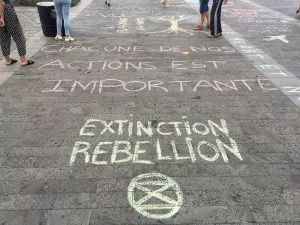 CHACUNE DE NOS
ACTIONS EST
IMPORTANTE
EXTINCTION
REBELLION